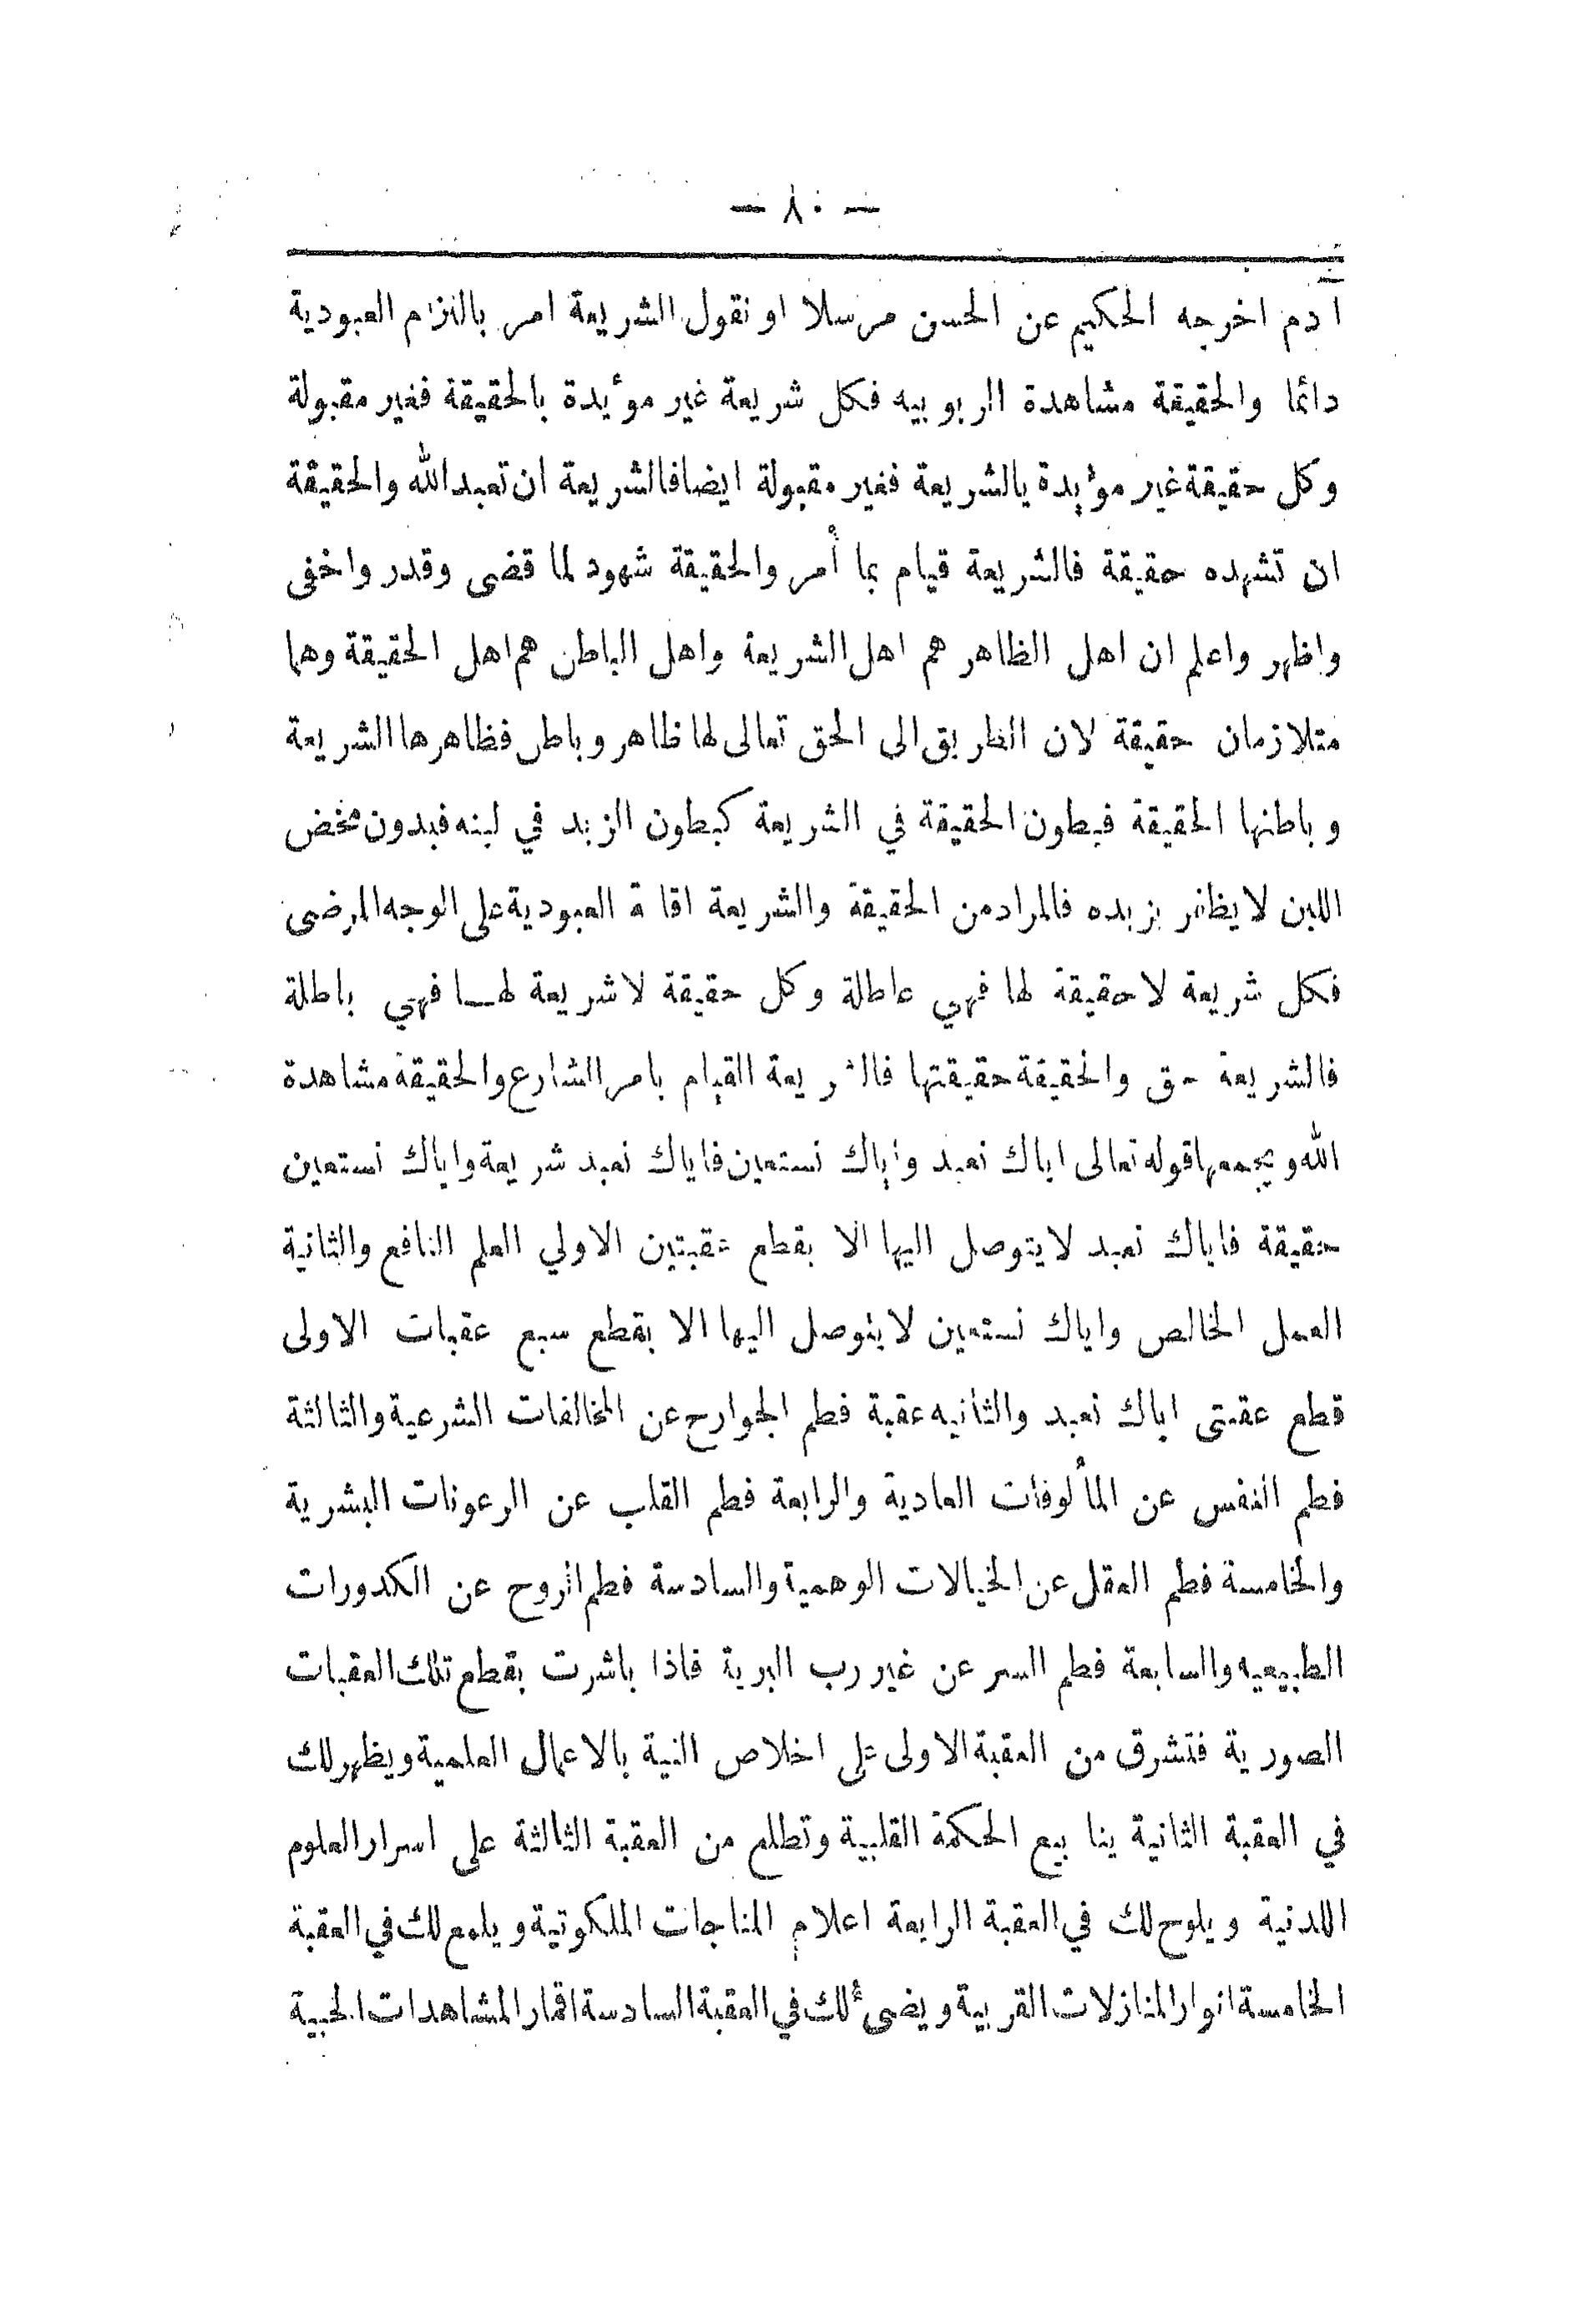 — ٨٠ —
آدم اخرجه الحكيم عن الحسن مرسلا او نقول الشريعة امر بالتزام العبودية
دائما والحقيقة مشاهدة الربوبيه فكل شريعة غير مؤيدة بالحقيقة فغير مقبولة
وكل حقيقة غير مؤيدة بالشريعة فغير مقبولة ايضا فالشريعة ان تعبد الله والحقيقة
ان تشهده حقيقة فالشريعة قيام بما أمر والحقيقة شهود لما قضى وقدر واخفى
واظهر واعلم ان اهل الظاهر هم اهل الشريعة واهل الباطن هم اهل الحقيقة وهما
متلازمان حقيقة لان الطريق الى الحق تعالى لها ظاهر وباطن فظاهرها الشريعة
وباطنها الحقيقة فبطون الحقيقة في الشريعة كبطون الزبد في لبنه فبدون مخض
اللبن لا يظفر بزبده فالمراد من الحقيقة والشريعة اقامة العبودية على الوجه المرضى
فكل شريعة لا حقيقة لها فهي عاطلة وكل حقيقة لا شريعة لهـا فهي باطلة
فالشريعة حق والحقيقة حقيقتها فالشريعة القيام بامر الشارع والحقيقة مشاهدة
الله ويجمعها قوله تعالى اياك نعبد واياك نستعين فاياك نعبد شريعة واياك نستعين
حقيقة فاياك نعبد لا يتوصل اليها الا بقطع عقبتين الاولي العلم النافع والثانية
العمل الخالص واياك نستعين لا يتوصل اليها الا بقطع سبع عقبات الاولى
قطع عقبتى اياك نعبد والثانيه عقبة فطم الجوارح عن المخالفات الشرعية والثالثة
فطم النفس عن المألوفات العادية والرابعة فطم القلب عن الرعونات البشرية
والخامسة فطم العقل عن الخيالات الوهمية والسادسة فطم الروح عن الكدورات
الطبيعيه والسابعة فطم السر عن غير رب البرية فاذا باشرت بقطع تلك العقبات
الصورية فتشرق من العقبة الاولى على اخلاص النية بالاعمال العلمية ويظهر لك
في العقبة الثانية ينابيع الحكمة القلبية وتطلع من العقبة الثالثة على اسرار العلوم
اللدنية ويلوح لك في العقبة الرابعة اعلام المناجات الملكوتية ويلمع لك في العقبة
الخامسة انوار المنازلات القربية ويضىء لك في العقبة السادسة اقمار المشاهدات الحبية